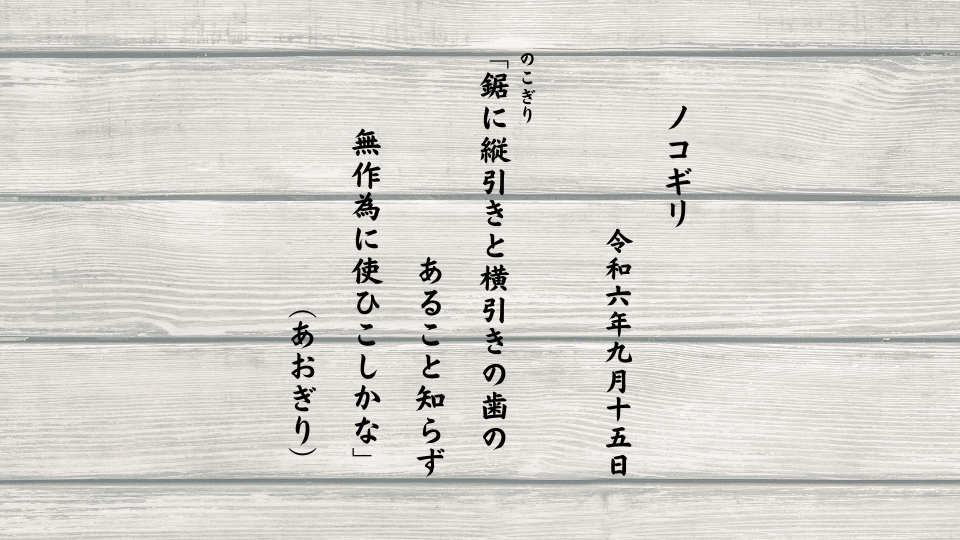 ノコギリ
令和六年九月十五日
のこぎり
「鋸に縦引きと横引きの歯の
あること知らず
無作為に使ひこしかな」
（あおぎり）